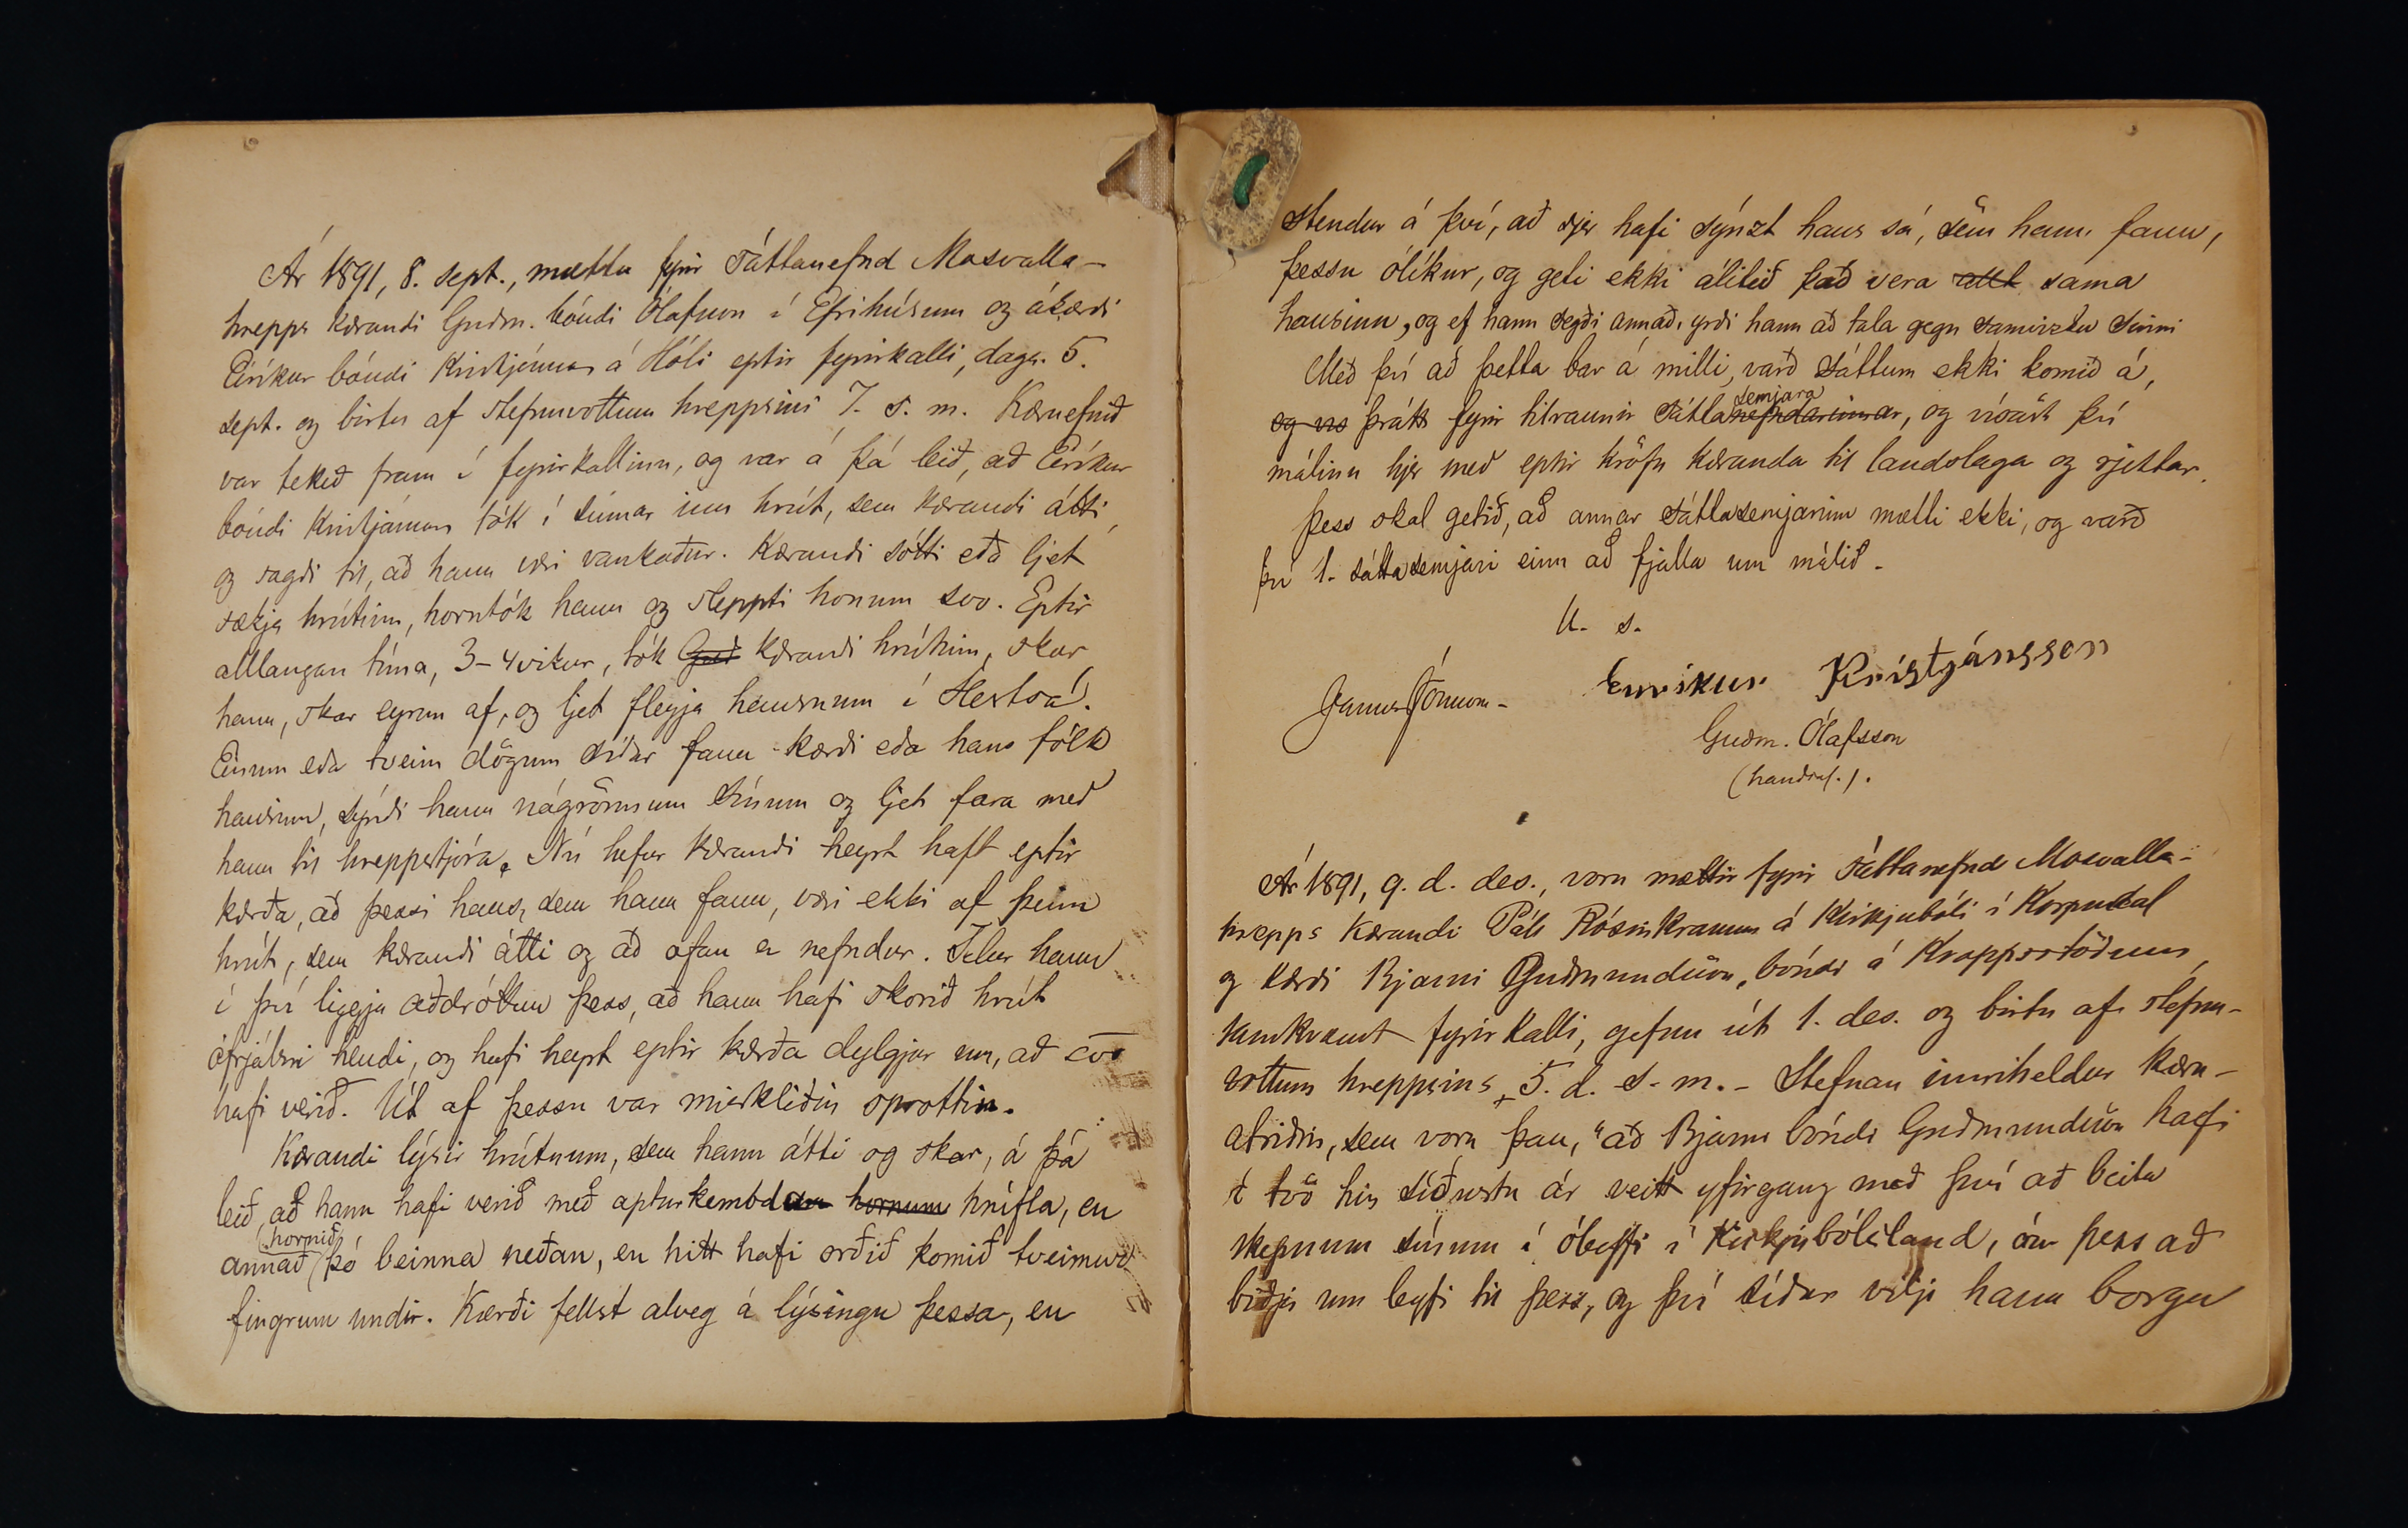 Ár 1891, 8. sept., mættu fyrir sáttanefnd Mosvalla-
hrepps kærandi Guðm. bóndi Ólafsson í Efrihúsum og ákærði
Eiríkur bóndi Kristjánsson á Hóli eptir fyrirkalli, dags. 5.
sept. og birtu af stefnuvottum hreppsins 7. s. m. Kæruefnið
var tekið fram í fyrirkallinu, og var á þá leið, að Eiríkur
bóndi Kristjánsson tók í sumar inn hrút, sem kærandi átti,
og sagði til, að hann væri vankaður. Kærandi sótti eða ljet
sækja hrútinn, horntók hann og sleppti honum svo. Eptir
alllangan tíma, 3-4 vikur, tók Guð kærandi hrútinn, skar
hann, skar eyrun af, og ljet fleygja hausnum í Hestsá.
Einum eða tveim dögum síðar fann kærði eða hans fólk
hausinn, sýndi hann nágrönnum sínum og ljet fara með
hann til hreppstjóra. Nú hefur kærandi heyrt haft eptir
kærða, að þessi haus, sem hann fann, væri ekki af þeim
hrút, sem kærandi átti og að ofan er nefndur. Telur hann
í því liggja aðdróttun þess, að hann hafi skorið hrút
ófrjálsri hendi, og hafi heyrt eptir kærða dylgjur um, að svo
hafi verið. Út af þessu var misklíðin sprottin.
Kærandi lýsir hrútnum, sem hann átti og skar, á þá
leið, að hann hafi verið með apturkembdum hornum hnífla, en
hornið
annað þó beinna neðan, en hitt hafi orðið komið tveimur
fingrum undir. Kærði fellst alveg á lýsingu þessa, en
stendur á því, að sjer hafi sýnzt haus sá, sem hann fann,
þessu ólíkur, og geti ekki álitið það vera allt sama
hausinn, og ef hann segði annað, yrði hann að tala gegn samvizku sinni
Með því að þetta bar á milli, varð sáttum ekki komið á,
semjara
og vs þrátt fyrir tilraunir sáttanefndarinnar, og vísast því
málinu hjer með eptir kröfu kæranda til landslaga og rjettar.
Þess skal getið, að annar sáttasemjarinn mætti ekki, og varð
því 1. sáttasemjari einn að fjalla um málið.
U. s.
Janus Jónsson. Eiríkur Kristjánsson
Guðm. Ólafsson
(handsal.).
Ár 1891, 9. d. des., voru mættir fyrir sáttanefnd Mosvalla-
hrepps kærandi Páll Rósinkransson á Kirkjubóli í Korpudal
og kærði Bjarni Guðmundsson, bóndi á Kroppsstöðum,
samkvæmt fyrirkalli, gefnu út 1. des. og birtu af stefnu-
vottum hreppsins 5. d. s. m. - Stefnan inniheldur kæru-
atriðin, sem voru þau, "að Bjarni bóndi Guðmundsson hafi
í tvö hin síðustu ár veitt yfirgang með því að beita
skepnum sínum í óleyfi í Kirkjubólsland, án þess að
biðja um leyfi til þess, og því síður vilji hann borga